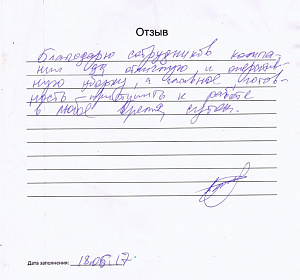 Отзыв
Благодарю сотрудников компа-
нии за отличную и оператив-
ную уборку, а главное готов-
ность – приступить к работе
в любое время суток.
Дата заполнения: 18.05.17.